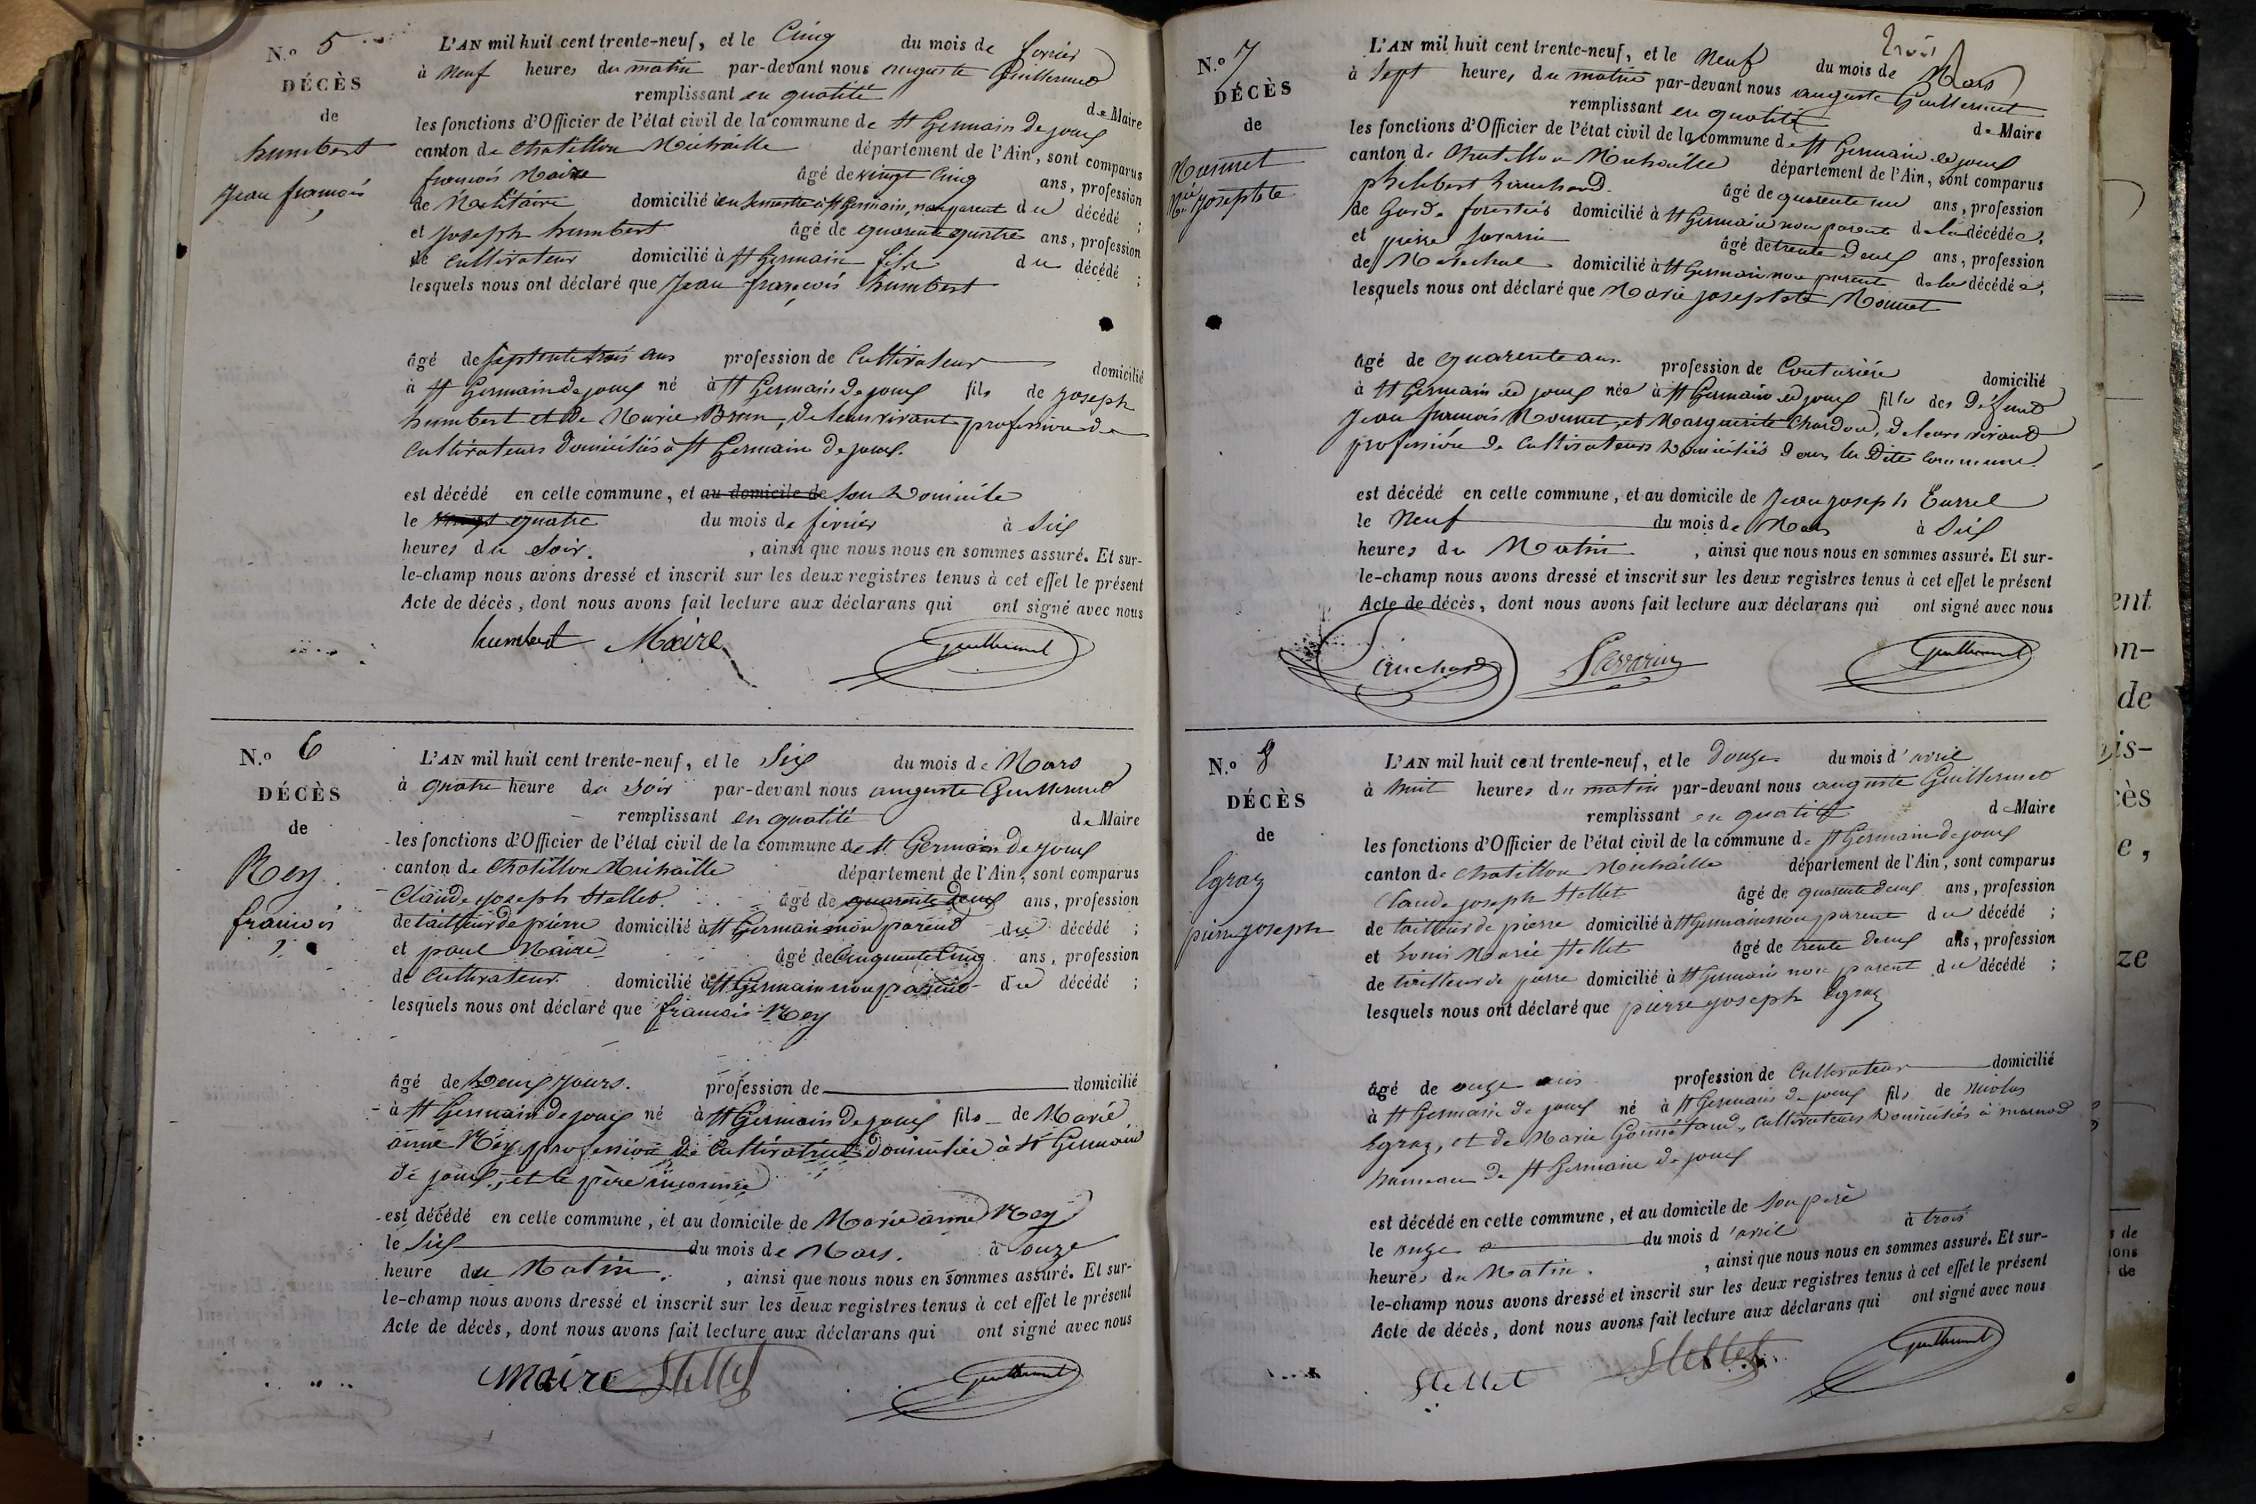 N.o 5
DÉCÈS
de
humbert
Jean françois
L'AN mil huit cent trente-neuf, et le Cinq du mois de fevrier
à Neuf heures du matin par-devant nous auguste Guillermet
remplissant en qualité de Maire
les fonctions d'Officier de l'état civil de la commune de St Germain de joux
canton de Chatillon Michaille département de l'Ain, sont comparus
françois Maire âgé de vingt cinq ans, profession
de Militaire domicilié en semestre à St Germain, non parent du décédé ;
et Joseph humbert âgé de quarente quatre ans, profession
de Cultivateur domicilié à St Germain fils du décédé ;
lesquels nous ont déclaré que Jean françois humbert
âgé de septente trois ans profession de Cultivateur domicilié
à St Germain de joux né à St Germain de joux fils de joseph
humbert et de Marie Brun, de leur vivant profession de
Cultivateurs Domiciliés à St Germain de joux.
est décédé en cette commune, et au domicile de Son Domicile
le vingt quatre du mois de fevrier à Six
heures du Soir. , ainsi que nous nous en sommes assuré. Et sur-
le-champ nous avons dressé et inscrit sur les deux registres tenus à cet effet le présent
Acte de décès, dont nous avons fait lecture aux déclarans qui ont signé avec nous
humbert Maire Guillermet
N.o 6
DÉCÈS
de
Rey
francois
L'AN mil huit cent trente-neuf, et le Six du mois de Mars
à quatre heure du Soir par-devant nous auguste Guillermet
remplissant en qualité de Maire
les fonctions d'Officier de l'état civil de la commune de St Germain de joux
canton de Chatillon Michaille département de l'Ain, sont comparus
Claude joseph Stellet âgé de quarente deux ans, profession
de tailleur de pierre domicilié à St Germain non parent du décédé ;
et paul Maire âgé de Cinquente Cinq ans, profession
de Cultivateur domicilié à St Germain non parent du décédé ;
lesquels nous ont déclaré que francois Rey
âgé de Deux jours. profession de domicilié
à St Germain de joux né à St Germain de joux fils de Marie
anne Rey profession de Cultivatrice domiciliée à St Germain
de joux, et le père inconnu
est décédé en cette commune, et au domicile de Marie anne Rey
le Six du mois de Mars. à onze
heure du Matin. , ainsi que nous nous en sommes assuré. Et sur-
le-champ nous avons dressé et inscrit sur les deux registres tenus à cet effet le présent
Acte de décès, dont nous avons fait lecture aux déclarans qui ont signé avec nous
Maire Stellet Guillermet
N.o 7
DÉCÈS
de
Mounet
Mie josephte
L'AN mil huit cent trente-neuf, et le Neuf du mois de Mars
à Sept heures du matin par-devant nous auguste Guillermet
remplissant en qualité de Maire
les fonctions d'Officier de l'état civil de la commune de St Germain de joux
canton de Chatillon Michaille département de l'Ain, sont comparus
philibert âgé de quarente un ans, profession
de Garde forestier domicilié à St Germain non parent de la décédée,
et pierre Savarin âgé de trente Deux ans, profession
de Marechal domicilié à St Germain non parent de la décédée,
lesquels nous ont déclaré que Marie josephte Mounet
âgé de quarente ans profession de Couturière domicilié
à St Germain de joux née à St Germain de joux fille des Défunt
Jean francois Mounet, et Marguerite Chardon, de leurs vivant
profession de Cultivateurs Domiciliés dans la Dite Commune.
est décédé en cette commune, et au domicile de Jean joseph Burrel
le Neuf du mois de Mars à Six
heures du Matin , ainsi que nous nous en sommes assuré. Et sur-
le-champ nous avons dressé et inscrit sur les deux registres tenus à cet effet le présent
Acte de décès, dont nous avons fait lecture aux déclarans qui ont signé avec nous
Savarin Guillermet
N.o 8
DÉCÈS
de
Egraz
pierre joseph
L'AN mil huit cent trente-neuf, et le Douze du mois d'avril
à huit heures du matin par-devant nous auguste Guillermet
remplissant en qualité de Maire
les fonctions d'Officier de l'état civil de la commune de St Germain de joux
canton de Chatillon Michaille département de l'Ain, sont comparus
Claude joseph Stellet âgé de quarente deux ans, profession
de tailleur de pierre domicilié à St Germain non parent du décédé ;
et Louis Marie Stellet âgé de trente deux ans, profession
de tailleur de pierre domicilié à St Germain non parent du décédé ;
lesquels nous ont déclaré que pierre joseph Egraz
âgé de onze ans profession de Cultivateur domicilié
à St Germain de joux né à St Germain de joux fils de nicolas
Egraz, et de Marie Cultivateurs Domiciliés à marnod
hameau de St Germain de joux
est décédé en cette commune, et au domicile de Son père
le onze du mois d'avril à trois
heures du Matin. , ainsi que nous nous en sommes assuré. Et sur-
le-champ nous avons dressé et inscrit sur les deux registres tenus à cet effet le présent
Acte de décès, dont nous avons fait lecture aux déclarans qui ont signé avec nous
Stellet Stellet Guillermet